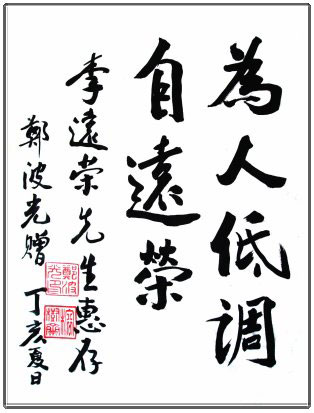 為人低调
自遠榮
李遠荣先生惠存
鄭波光赠
丁亥夏日